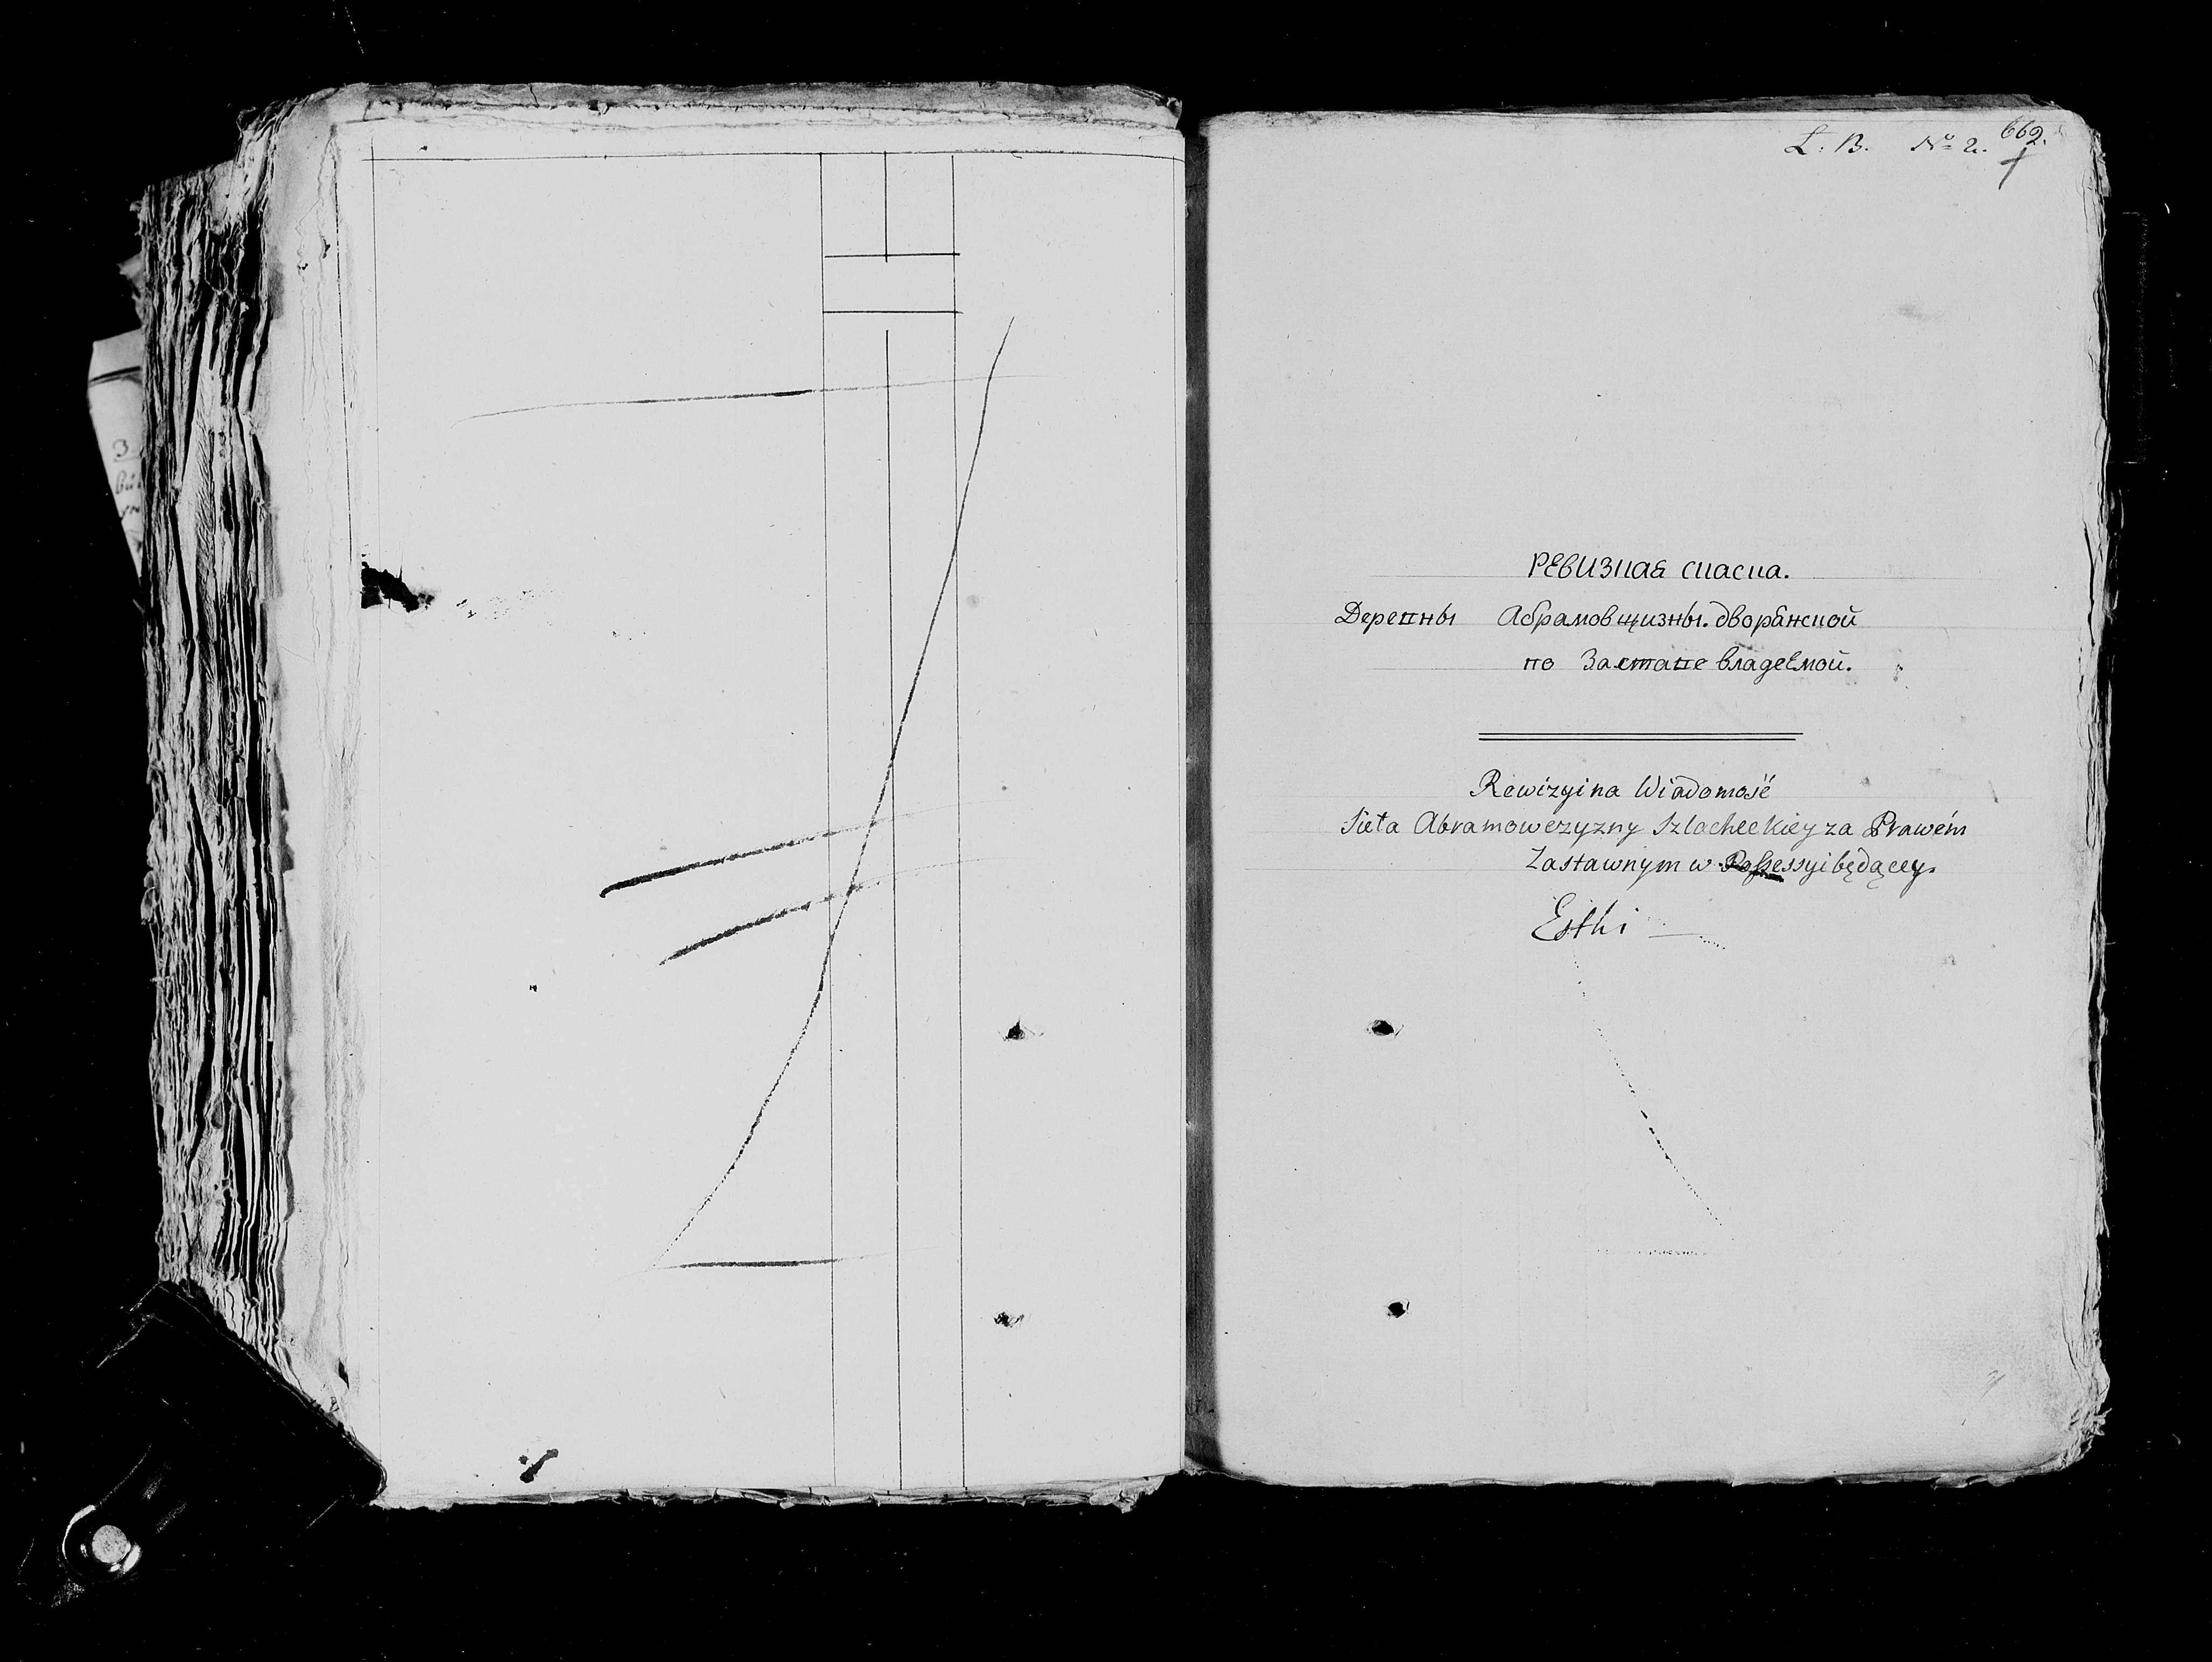 L: B. № 2. 662.
РЕВИЗНАЯ СКАСКА.
Деревны Абрамовщизны. дворянской
по Заставе владеемой.
Rewizyina Wiadomość
Sieła Abramowczyzny Szlacheckiey za Prawem
Zastawnym w Possessyi będącey.